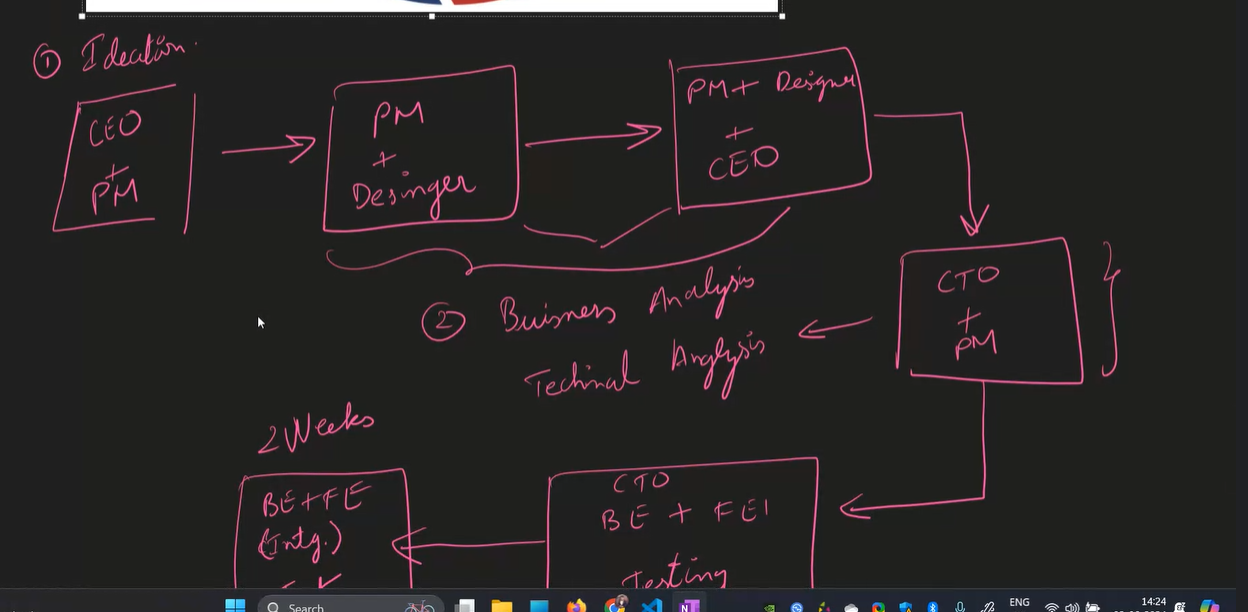 ① Ideation.
CEO
+
PM
PM
+
Desinger
PM + Designer
+
CEO
CTO
+
PM
② Buisness Analysis
Techinal Anglysis
2 Weeks
BE+FE
(Intg.)
CTO
BE + FE
Testing
Search
ENG
14:24